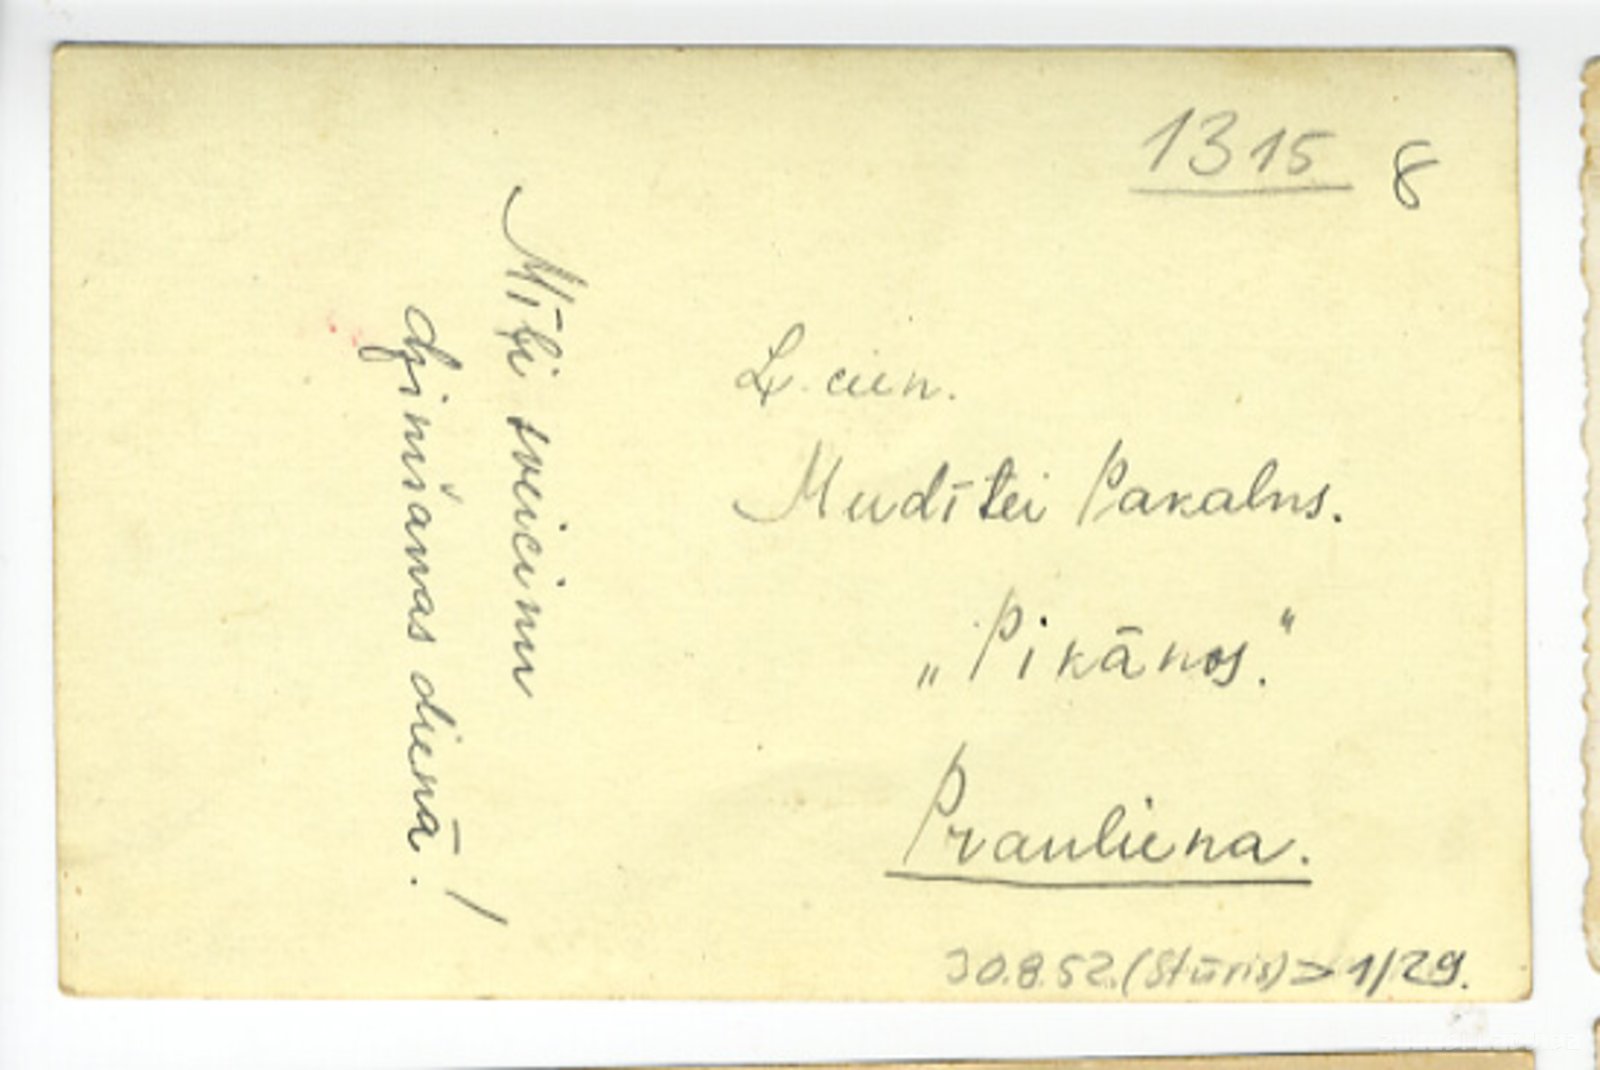 1315 8
Mīļi sveicinu
dzimšanas dienā!
L. cien.
Mudītei Pakalns.
„Pikānos."
Prauliena.
30.8.52. (Stūris) > 1/29.